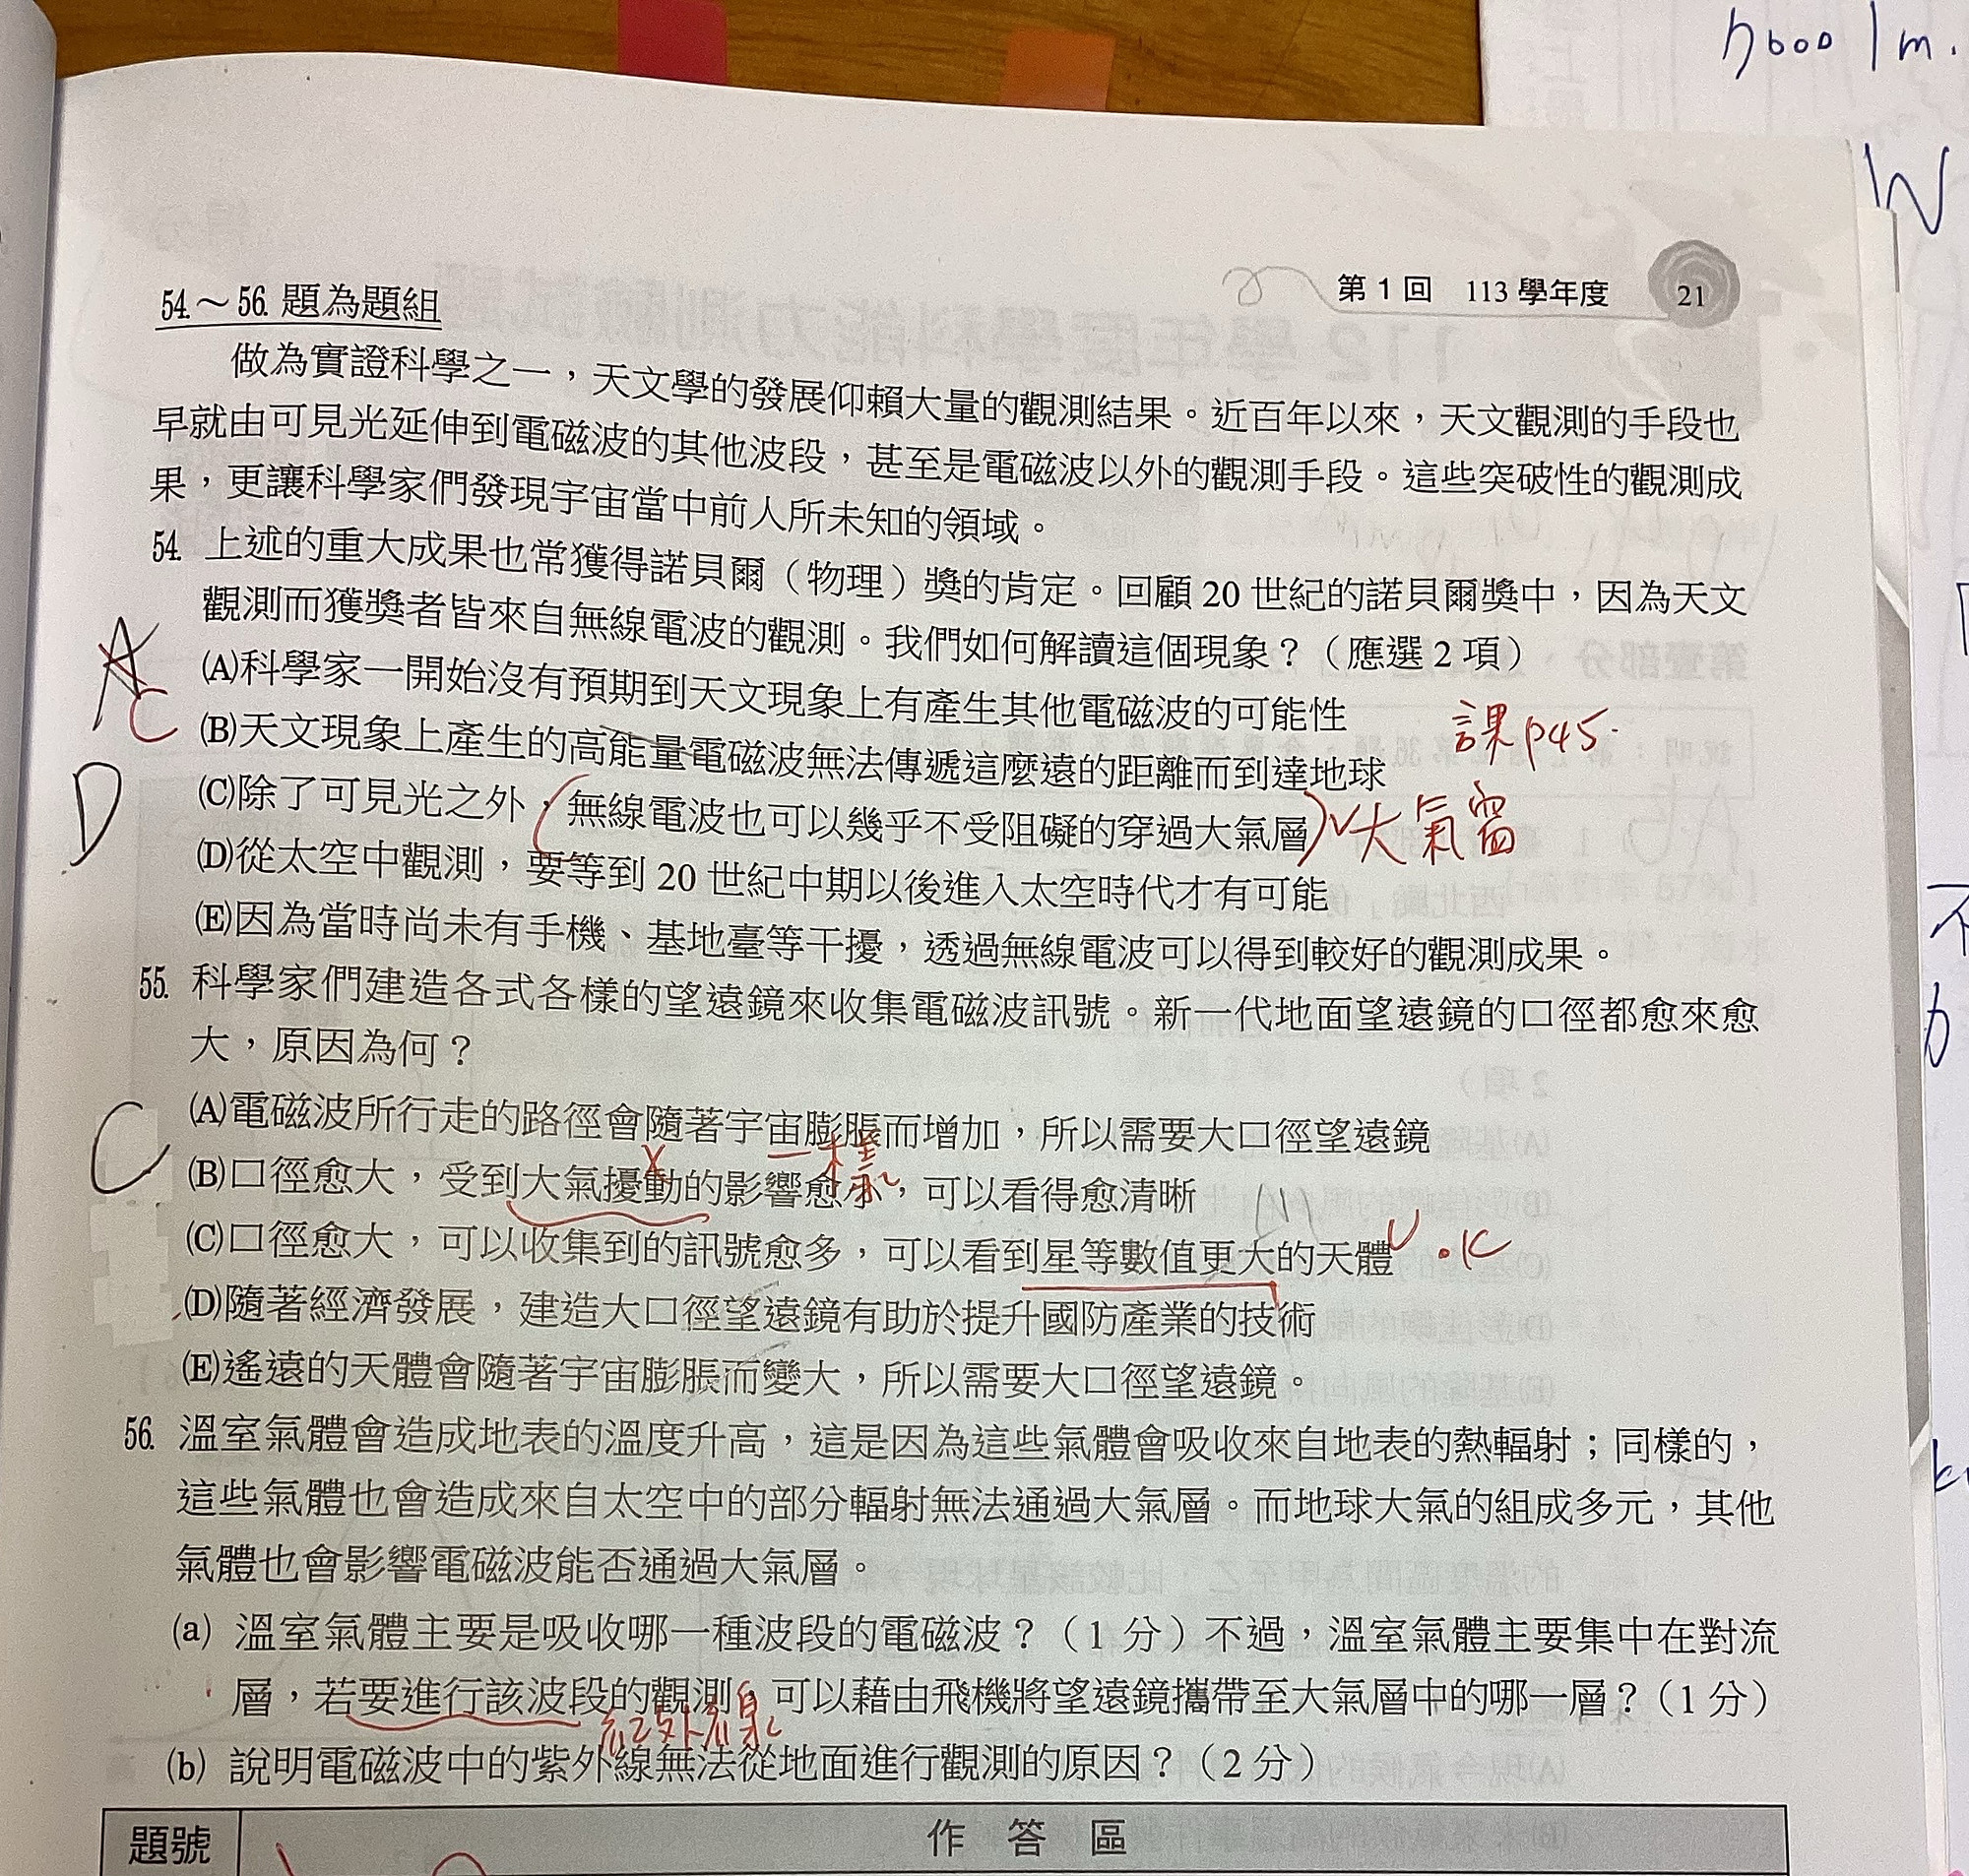 ηbooo 1m.
W
第1回 113學年度 21
54.～56. 題為題組
做為實證科學之一，天文學的發展仰賴大量的觀測結果。近百年以來，天文觀測的手段也
早就由可見光延伸到電磁波的其他波段，甚至是電磁波以外的觀測手段。這些突破性的觀測成
果，更讓科學家們發現宇宙當中前人所未知的領域。
54. 上述的重大成果也常獲得諾貝爾（物理）獎的肯定。回顧 20 世紀的諾貝爾獎中，因為天文
觀測而獲獎者皆來自無線電波的觀測。我們如何解讀這個現象？（應選 2 項）
A
C
D
(A)科學家一開始沒有預期到天文現象上有產生其他電磁波的可能性
課p45.
(B)天文現象上產生的高能量電磁波無法傳遞這麼遠的距離而到達地球
(C)除了可見光之外，(無線電波也可以幾乎不受阻礙的穿過大氣層)✓大氣窗
(D)從太空中觀測，要等到 20 世紀中期以後進入太空時代才有可能
(E)因為當時尚未有手機、基地臺等干擾，透過無線電波可以得到較好的觀測成果。
55. 科學家們建造各式各樣的望遠鏡來收集電磁波訊號。新一代地面望遠鏡的口徑都愈來愈
大，原因為何？
C
(A)電磁波所行走的路徑會隨著宇宙膨脹而增加，所以需要大口徑望遠鏡
X 一樣
(B)口徑愈大，受到大氣擾動的影響愈小，可以看得愈清晰
(C)口徑愈大，可以收集到的訊號愈多，可以看到星等數值更大的天體
(D)隨著經濟發展，建造大口徑望遠鏡有助於提升國防產業的技術
(E)遙遠的天體會隨著宇宙膨脹而變大，所以需要大口徑望遠鏡。
56. 溫室氣體會造成地表的溫度升高，這是因為這些氣體會吸收來自地表的熱輻射；同樣的，
這些氣體也會造成來自太空中的部分輻射無法通過大氣層。而地球大氣的組成多元，其他
氣體也會影響電磁波能否通過大氣層。
(a) 溫室氣體主要是吸收哪一種波段的電磁波？（1 分）不過，溫室氣體主要集中在對流
層，若要進行該波段的觀測，可以藉由飛機將望遠鏡攜帶至大氣層中的哪一層？（1 分）
紅外線
(b) 說明電磁波中的紫外線無法從地面進行觀測的原因？（2 分）
題號 作答區